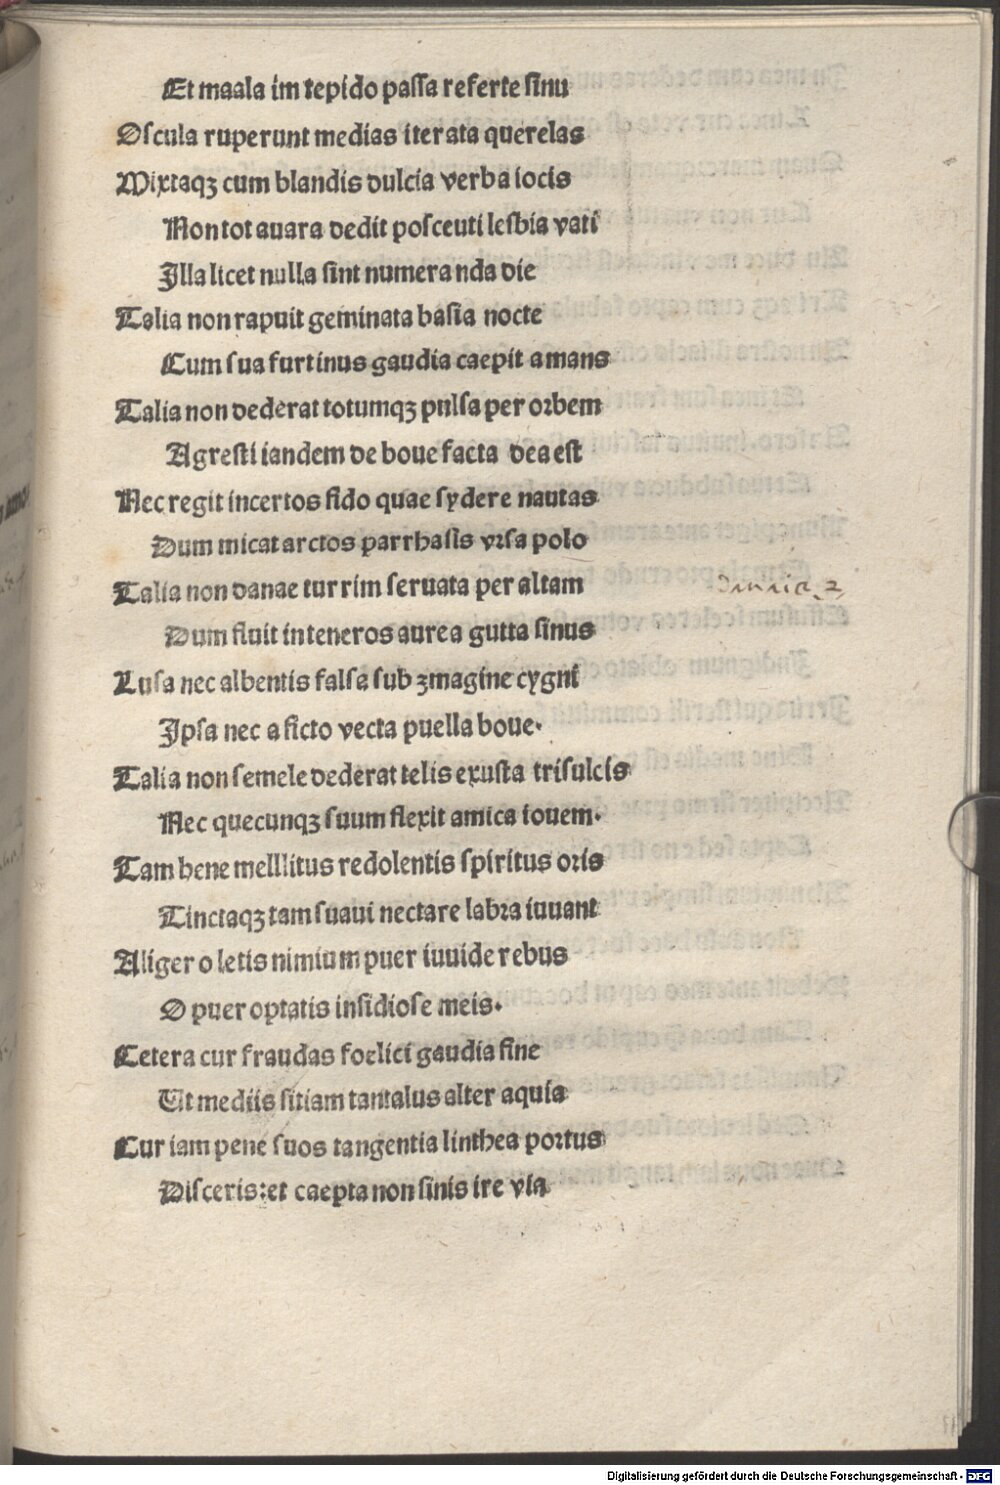 Et maala im tepido paſſa referte ſinu
Oſcula ruperunt medias iterata querelas
Mixtaqꝫ cum blandis dulcia verba iocis
Non tot auara dedit poſceuti leſbia vati
Illa licet nulla ſint numera nda die
Talia non rapuit geminata baſia nocte
Cum ſua furtinus gaudia caepit amans
Talia non dederat totumqꝫ pulſa per orbem
Agreſti iandem de boue facta dea eſt
Nec regit incertos fido quae ſydere nautas
Dum micat arctos parrhaſis vrſa polo
Talia non danae turrim ſeruata per altam
Dum fluit in teneros aurea gutta ſinus
Luſa nec albentis falſa ſub ꝫmagine cygni
Ipſa nec a ficto vecta puella boue.
Talia non ſemele dederat telis exuſta triſulcis
Nec quecunqꝫ ſuum flexit amica iouem.
Tam bene melllitus redolentis ſpiritus oris
Tinctaqꝫ tam ſuaui nectare labra iuuant
Aliger o letis nimium puer iuuide rebus
O puer optatis inſidioſe meis.
Cetera cur fraudas foelici gaudia fine
Vt mediis ſitiam tantalus alter aquia
Cur iam pene ſuos tangentia linthea portus
Diſceris: et caepta non ſinis ire via
Digitalisierung gefördert durch die Deutsche Forschungsgemeinschaft - DFG